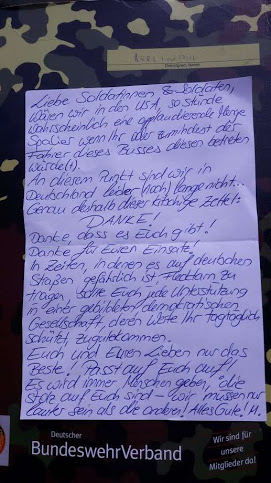 Liebe Soldatinnen & Soldaten,
wären wir in den USA, so stünde
wahrscheinlich eine applaudierende Menge
Spalier wenn Ihr oder zumindest der
Fahrer dieses Busses diesen betreten
würde(t).
An diesem Punkt sind wir in
Deutschland leider (noch) lange nicht...
Genau deshalb dieser Zettel:
DANKE!
Danke, dass es Euch gibt!
Danke für Euren Einsatz!
In Zeiten, in denen es auf deutschen
Straßen gefährlich ist, Flecktarn zu
tragen, sollte Euch jede Unterstützung
in einer gebildeten demokratischen
Gesellschaft, deren Werte Ihr tagtäglich
schützt, zugutekommen.
Euch und Euren Lieben nur das
Beste! Passt auf Euch auf!
Es wird immer Menschen geben, die
stolz auf Euch sind - wir müssen nur
lauter sein als die anderen! Alles Gute! M.
Deutscher
BundeswehrVerband
Wir sind für
unsere
Mitglieder da!